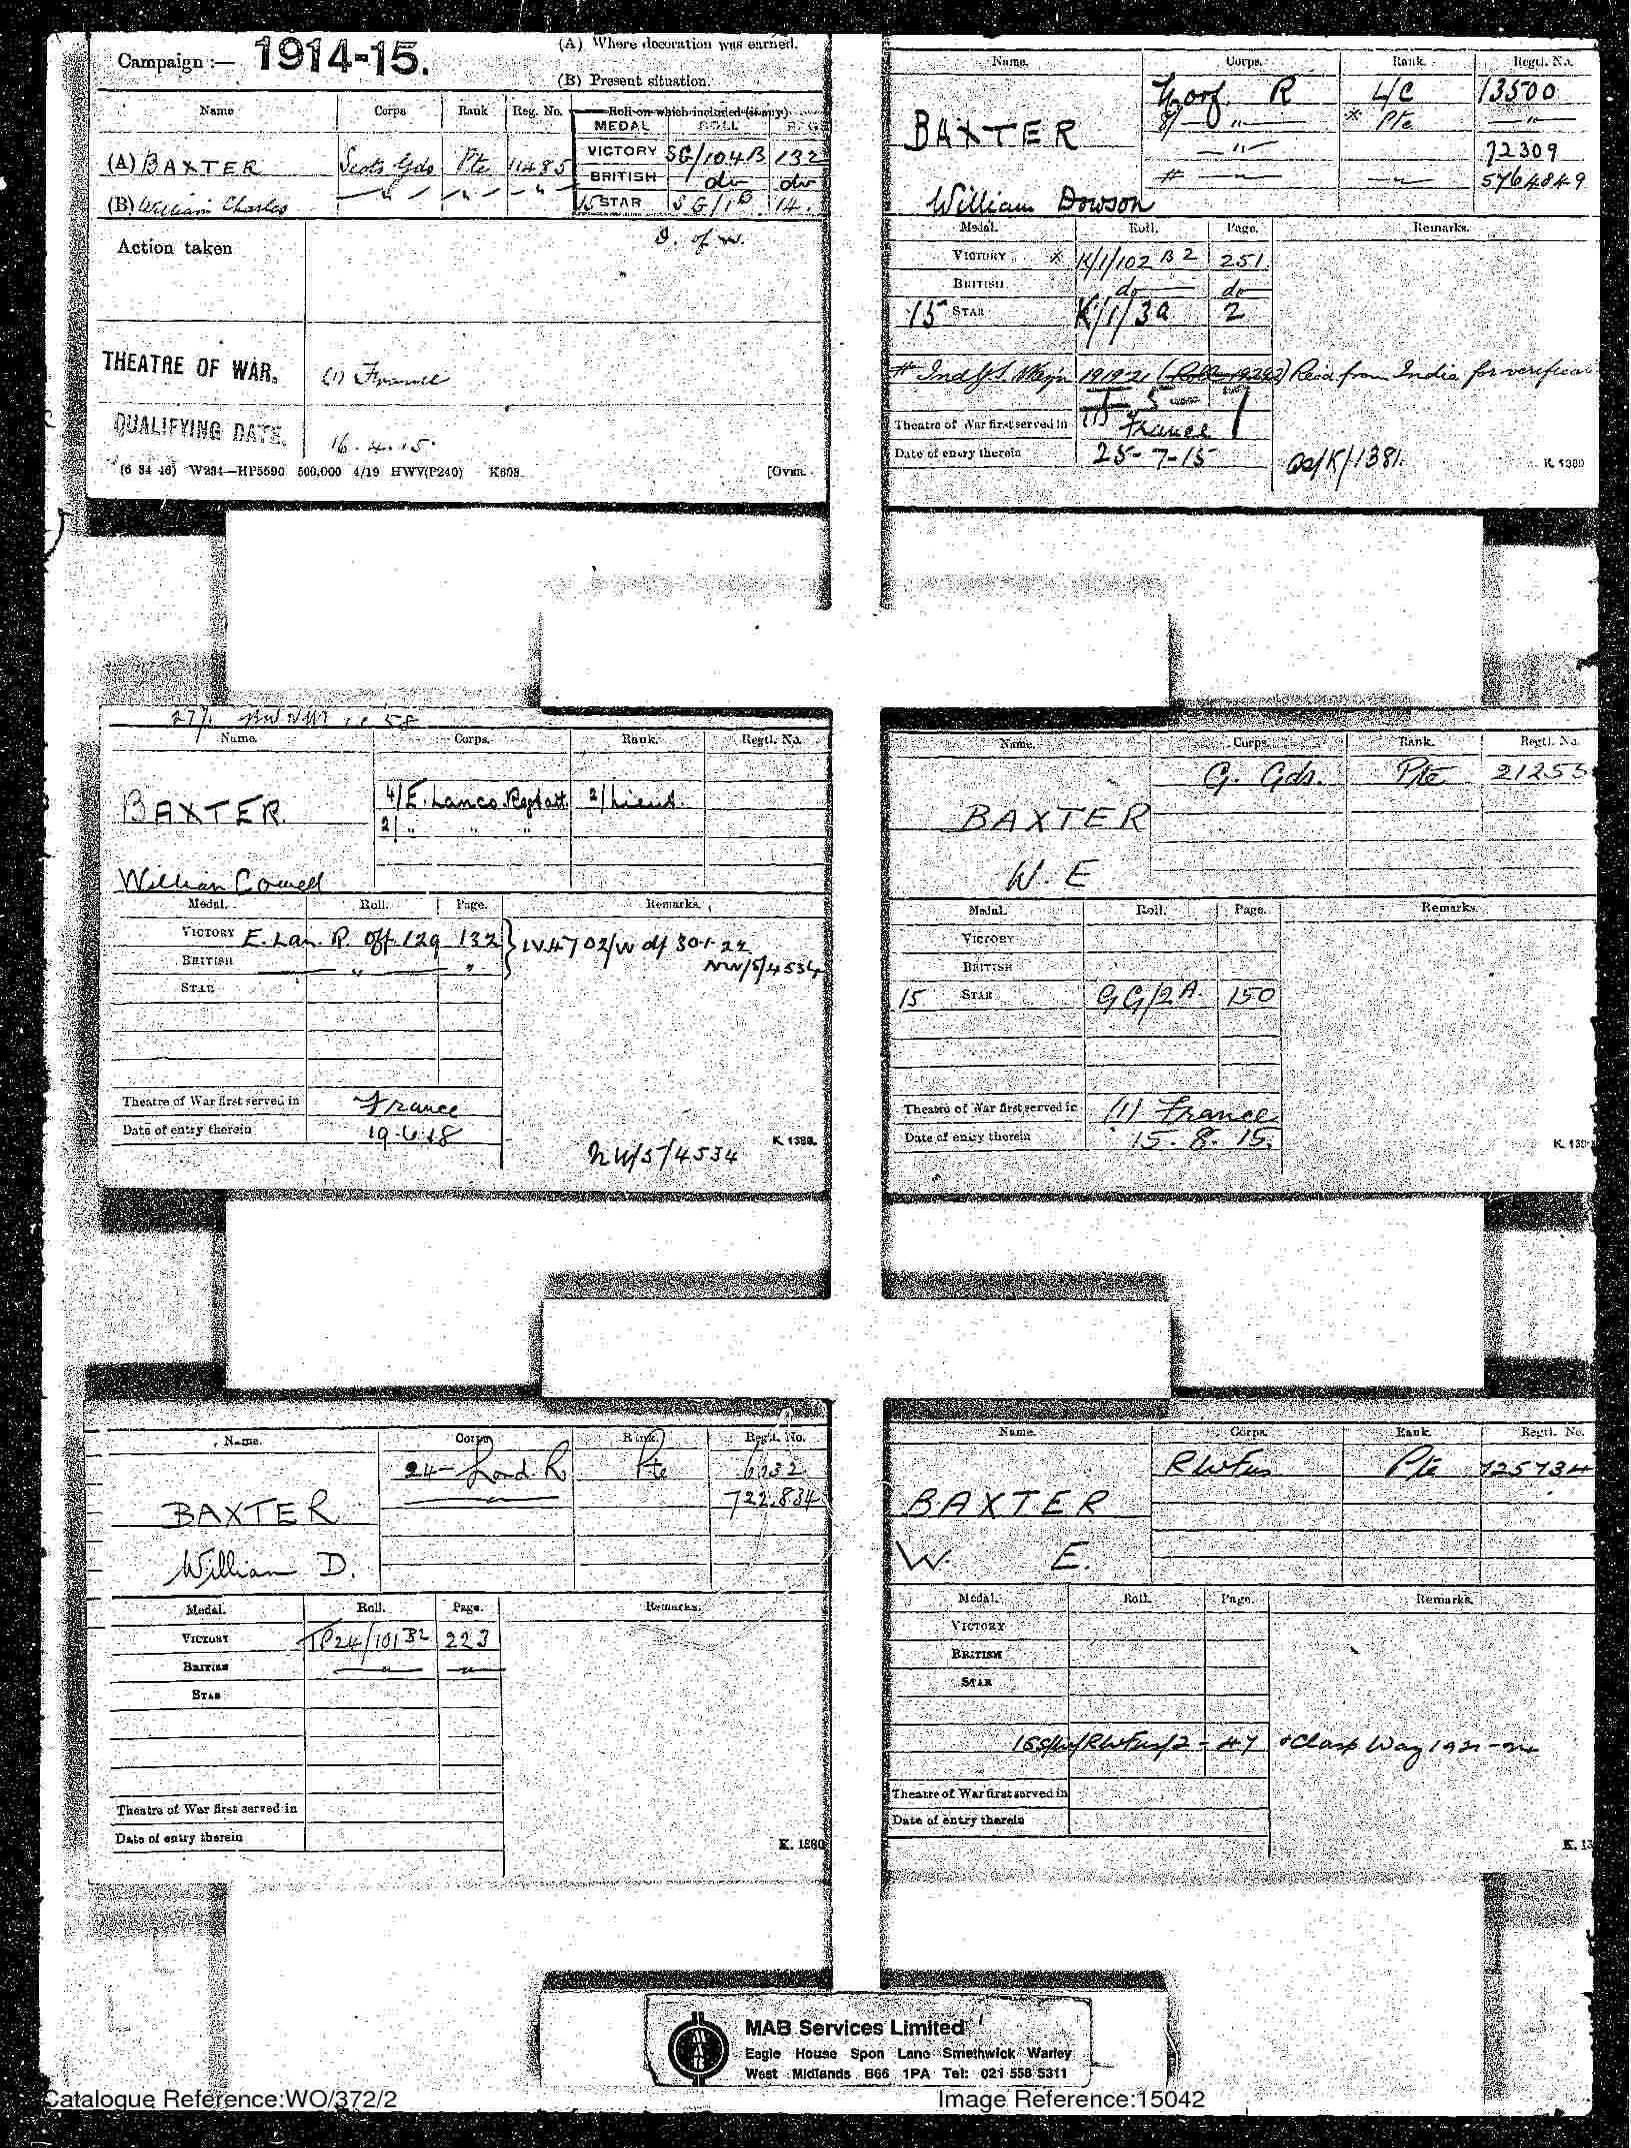 Campaign :— 1914-15.
(A) Where decoration was earned.
(B) Present situation.
Name Corps Rank Reg. No. Roll on which included (if any)
MEDAL ROLL PAGE
(A) BAXTER Scots Gds Pte 11485 VICTORY SG/104B 132
BRITISH do do
(B) William Charles — " — — " — — " — 15 STAR SG/1B 14.
Action taken D. of W.
THEATRE OF WAR. (1) France
QUALIFYING DATE. 16.4.15.
(6 34 46) W234—HP5590 500,000 4/19 HWV(P240) K608. [OVER.
Name. Corps. Rank. Regtl. No.
BAXTER
Norf. R L/C 13500
" * Pte — " —
— " — 72309
# — " — 5764849
William Dowson
Medal. Roll. Page. Remarks.
VICTORY * K/1/102 B2 251.
BRITISH do do
15 STAR K/1/3A 2
1919-21 Recd from India for
Theatre of War first served in (1) France
Date of entry therein 25-7-15
K. 1380
Name. Corps. Rank. Regtl. No.
BAXTER.
4/E. Lancs. Regt att. 2/Lieut.
2/ " " "
William Cowell
Medal. Roll. Page. Remarks.
VICTORY E. Lan. R. Off. 129 132 } IV4702/W df 30-1-22
BRITISH — " — " NW/5/4534
STAR
Theatre of War first served in France
Date of entry therein 19.6.18
NW/5/4534 K. 1380.
Name. Corps. Rank. Regtl. No.
G. Gds. Pte 21255
BAXTER
W. E
Medal. Roll. Page. Remarks.
VICTORY
BRITISH
15 STAR GG/2A. 150
Theatre of War first served in (1) France
Date of entry therein 15.8.15.
Name. Corps. Rank. Regtl. No.
24- Lond. R Pte 6932
— " — 722834
BAXTER
William D.
Medal. Roll. Page. Remarks.
VICTORY TP24/101B2 223
BRITISH — " — — " —
STAR
Theatre of War first served in
Date of entry therein
K. 1380
Name. Corps. Rank. Regtl. No.
RWFus Pte 725734
BAXTER
W. E.
Medal. Roll. Page. Remarks.
VICTORY
BRITISH
STAR
RWFus/2 - 47 + Clasp Waz 1921-24
Theatre of War first served in
Date of entry therein
MAB Services Limited
Eagle House Spon Lane Smethwick Warley
West Midlands B66 1PA Tel: 021 558 5311
Catalogue Reference:WO/372/2
Image Reference:15042